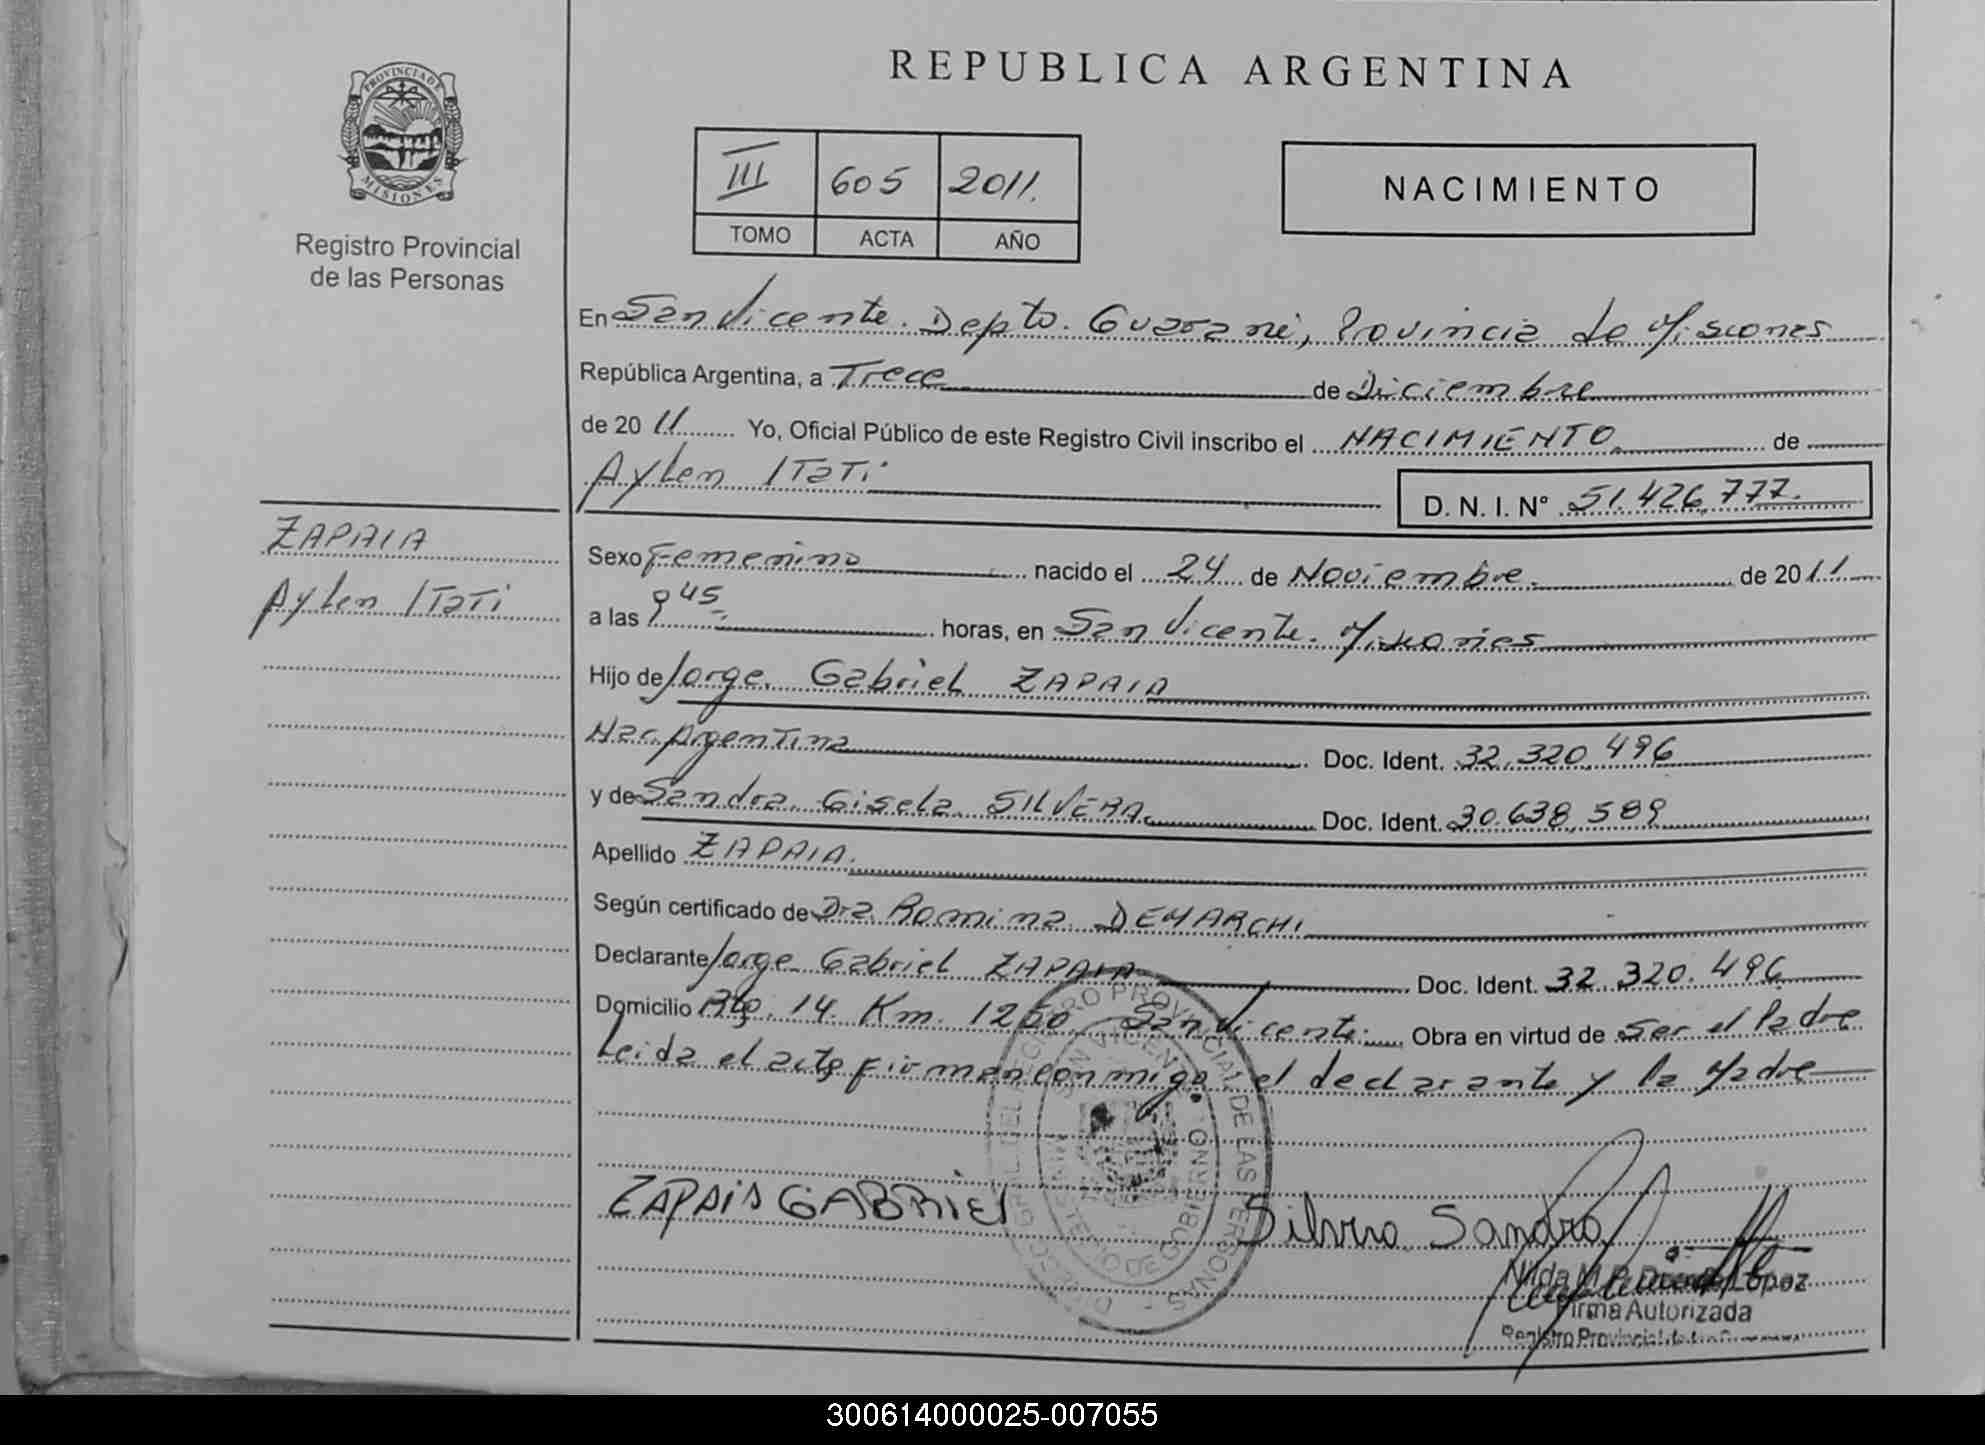 REPUBLICA ARGENTINA
PROVINCIA DE
MISIONES
Registro Provincial
de las Personas
III 605 2011.
TOMO ACTA AÑO
NACIMIENTO
En San Vicente. Depto. Guaraní, Provincia de Misiones
República Argentina, a Trece de Diciembre
de 2011 Yo, Oficial Público de este Registro Civil inscribo el NACIMIENTO de
Aylen Itati
D. N. I. N° 51.426.777.
ZAPAIA
Aylen Itati
Sexo Femenino nacido el 24 de Noviembre. de 2011
a las 9 45 horas, en San Vicente. Misiones
Hijo de Jorge Gabriel ZAPAIA
Nac. Argentina Doc. Ident. 32.320.496
y de Sandra Gisela SILVERA Doc. Ident. 30.638.589
Apellido ZAPAIA.
Según certificado de Dra. Romina DEMARCHI
Declarante Jorge Gabriel ZAPAIA Doc. Ident. 32.320.496
Domicilio 14 Km. San Vicente Obra en virtud de ser el Padre
Leida el acta firman conmigo el declarante y la Madre
ZAPAIA GABRIEL
Silvera Sandra
REGISTRO PROVINCIAL DE LAS PERSONAS
SAN VICENTE
MINISTERIO DE GOBIERNO
Nilda M. Lopez
Firma Autorizada
Registro Provincial
300614000025-007055